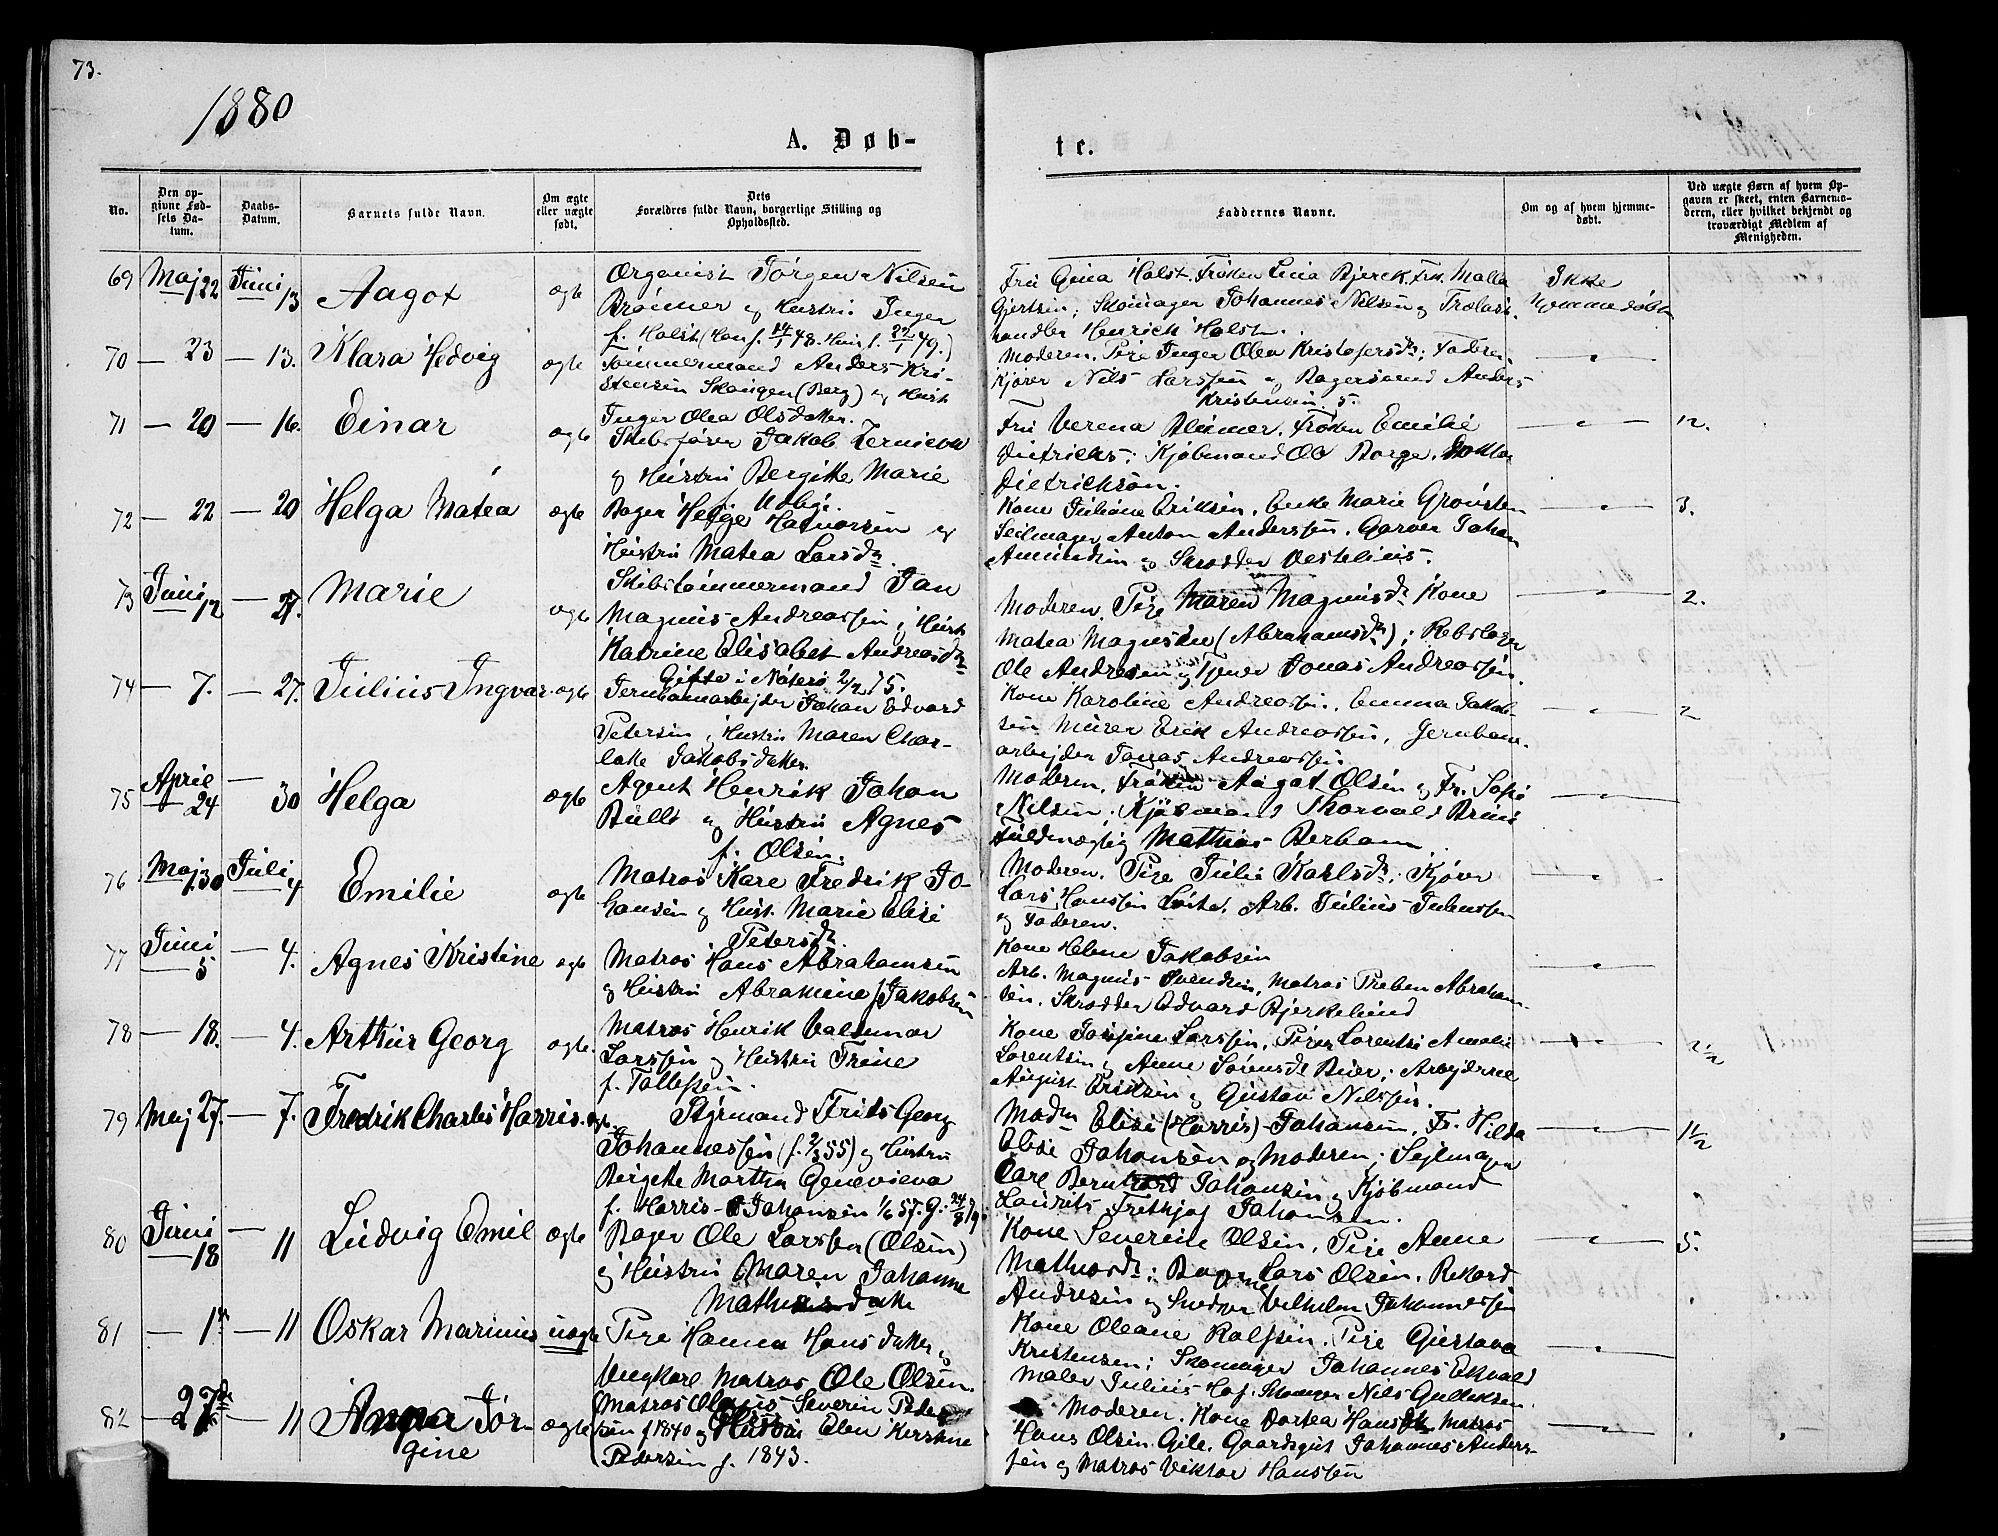 73.
1880
A. Døb-
te.
No.
Den op-
givne Fød-
sels Da-
tum.
Daabs-
Datum.
Barnets fulde Navn.
Om ægte
eller uægte
født.
Dets
Forældres fulde Navn, borgerlige Stilling og
Opholdssted.
Faddernes Navne.
Om og af hvem hjemme-
døbt.
Ved uægte Børn af hvem Op-
gaven er skeet, enten Barnemo-
deren, eller hvilket bekjendt og
troværdigt Medlem af
Menigheden.
69 Maj 22 Juni 13 Aagot ægte
Organist Jørgen Nilsen
Brømer og Hustru Inger
f. Holst (Han f. 14/1 48. Hun f. 27/1 49.)
Fru Gina Holst, Frøken Lina Bjerck, Frk. Malla
Gjertsen; Skomager Johannes Nilsen og Trælast-
handler Henrick Holst.
Ikke
hjemmedøbt
70 — 23 — 13. Klara Hedvig ægte
Tømmermand Anders Kri-
stensen Skaugen (Berg) og Hust
Inger Olea Olsdatter.
Moderen, Pige Inger Olea Kristofersdr; Faderen,
Kjører Nils Larssen og Bagersvend Anders
Kristensen 5.
71 — 20 — 16. Einar ægte
Skibsfører Jakob Zernichow
og Hustru Bergitte Marie
f. Udbye.
Fru Verena Blümer, Frøken Emilie
Dietrichs; Kjøbmand Ole Borge, Doktor
Dietrichson.
12.
72 — 22 — 20 Helga Matea ægte
Bager Helge Halvorsen og
Hustru Matea Larsdr.
Kone Juliane Eriksen, Enke Marie Gronsten
Seilmager Anton Anderssen, Garver Johan
Amundsen og Skrædder Vestelius.
3.
73 Juni 12 — 27. Marie ægte
Skibstømmermand Jan
Magnus Andreassen; Hust
Katrine Elisabet Andreasdr
Gifte i Nøterø 2/2 75.
Moderen, Pige Maren Magnusdr Kone
Matea Magnusen (Abrahamsdr); Rebslager
Ole Andresen og Tjener Jonas Andreassen.
2.
74 — 7. — 27. Julius Ingvar ægte
Jernbanearbejder Johan Edvard
Petersen, Hustru Maren Char-
lotte Jakobsdatter.
Kone Karoline Andreassen, Emma Jakob-
sen Murer Erik Andreassen, Jernbane-
arbejder Jonas Andreassen
2
75 April 24 — 30 Helga ægte
Agent Henrik Johan
Bull og Hustru Agnes
f. Olsen.
Moderen, Frøken Aagot Olsen og Fr. Sofie
Nilsen; Kjøbmand Thorvald Bruu
Fuldmægtig Mathias Berham
76 Maj 30 Juli 4 Emilie ægte
Matros Kare Fredrik Jo-
hansen og Hust. Marie Elise
Petersdr.
Moderen, Pige Julie Karlsdr; Kjører
Lars Hanssen Løite, Arb. Julius Julinssen
og Faderen.
77 Juni 5 — 4. Agnes Kristine ægte
Matros Hans Abrahamsen
og Hustru Abramine f. Jakobsen
Kone Helene Jakobsen
Arb. Magnus Svendsen, Matros Preben Abraham-
sen, Skrædder Edvard Bjerkelund
78 — 18. — 4. Arthur Georg ægte.
Matros Henrik Valdemar
Larssen og Hustru Trine
f. Tollefsen.
Kone Josefine Larssen, Piger Lorentse Amalie
Lorentsen og Anne Sørensdr Bier; Arbejderne
August Eriksen og Gustav Nilssen.
2 1/2
79 Maj 27. — 7. Fredrik Charles Harris. ægte
Styrmand Frits Georg
Johannessen (f. 2/3 55) og Hustru
Birgitte Martha Genevieva
f. Harris-Johansen 1/6 57. G. 24/8 79.
Modn Elise (Harris) Johansen, Fr. Hilda
Elise Johansen og Moderen; Sejlmager
Carl Bernhard Johansen og Kjøbmand
Laurits Frithjof Johansen.
1 1/2
80 Juni 18 — 11 Ludvig Emil ægte
Bager Ole Larssen (Olsen)
og Hustru Maren Johanne
Mathiasdatte
Kone Severine Olsen, Pige Anne
Mathiasdr; Bager Lars Olsen, Rekord
Andresen og Snedker Vilhelm Johannessen
5.
81 — 1. — 11 Oskar Marinius uægte
Pige Hanna Hansdatter og
Ungkarl Matros Ole Olsen.
Kone Oleane Rolfsen, Pige Gustava
Kristensen; Skomager Johannes Ekvald
Maler Julius Hof, Skomager Nils Gulliksen.
82 — 27de — 11 Anna Jør-
gine ægte
Matros Olaus Severin Peder-
sen f. 1840 og Hustru Elen Kirstine
Pedersen f. 1843.
Moderen, Kone Dortea Hansdtr Matros
Hans Olsen Gile, Gaardsgut Johannes Anders-
sen og Matros Viktor Hanssen